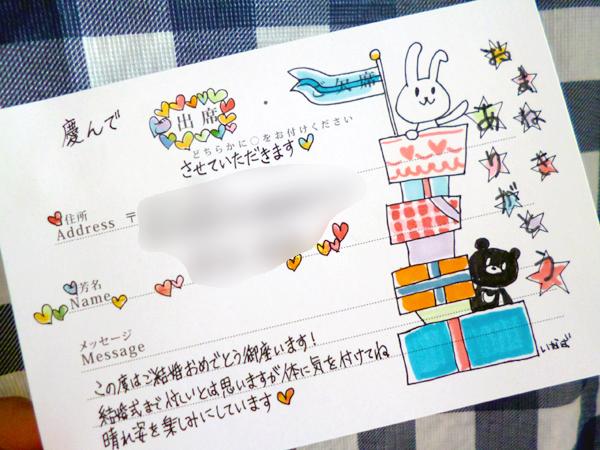 慶んで
出席
欠席
どちらかに○をお付けください
させていただきます
住所
Address 〒
芳名
Name
メッセージ
Message
この度はご結婚おめでとう御座います!
結婚式まで忙しいとは思いますが体に気を付けてね
晴れ姿を楽しみにしています
おまねき
ありがとう